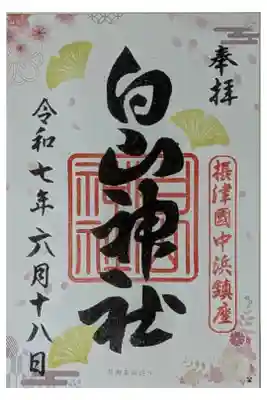 奉拝
摂津國中浜鎮座
白山神社
令和七年六月十八日